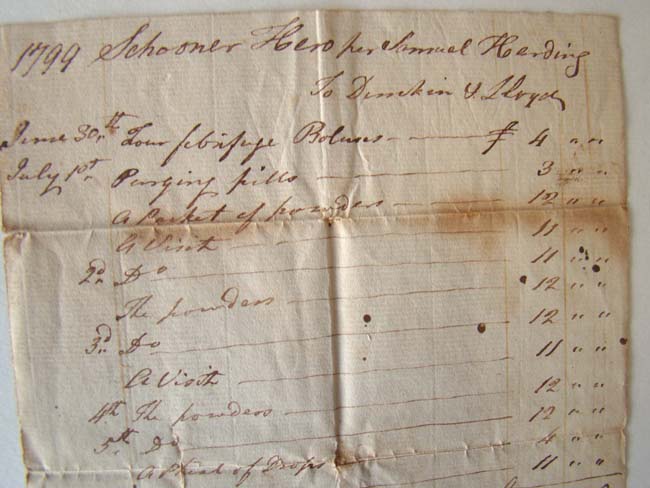 1799 Schooner Hero per Samuel Harding
To Dunskin & Lloyd
June 30th Four febrifuge Boluses 4 " "
July 1st Purging pills 3 " "
A Packet of powders 12 " "
A Visit 11 " "
2d Do 11 " "
The powders 12 " "
3d Do 12 " "
A Visit 11 " "
4th The powders 12 " "
5th Do 12 " "
A Phial of Drops 4 " "
11 " "